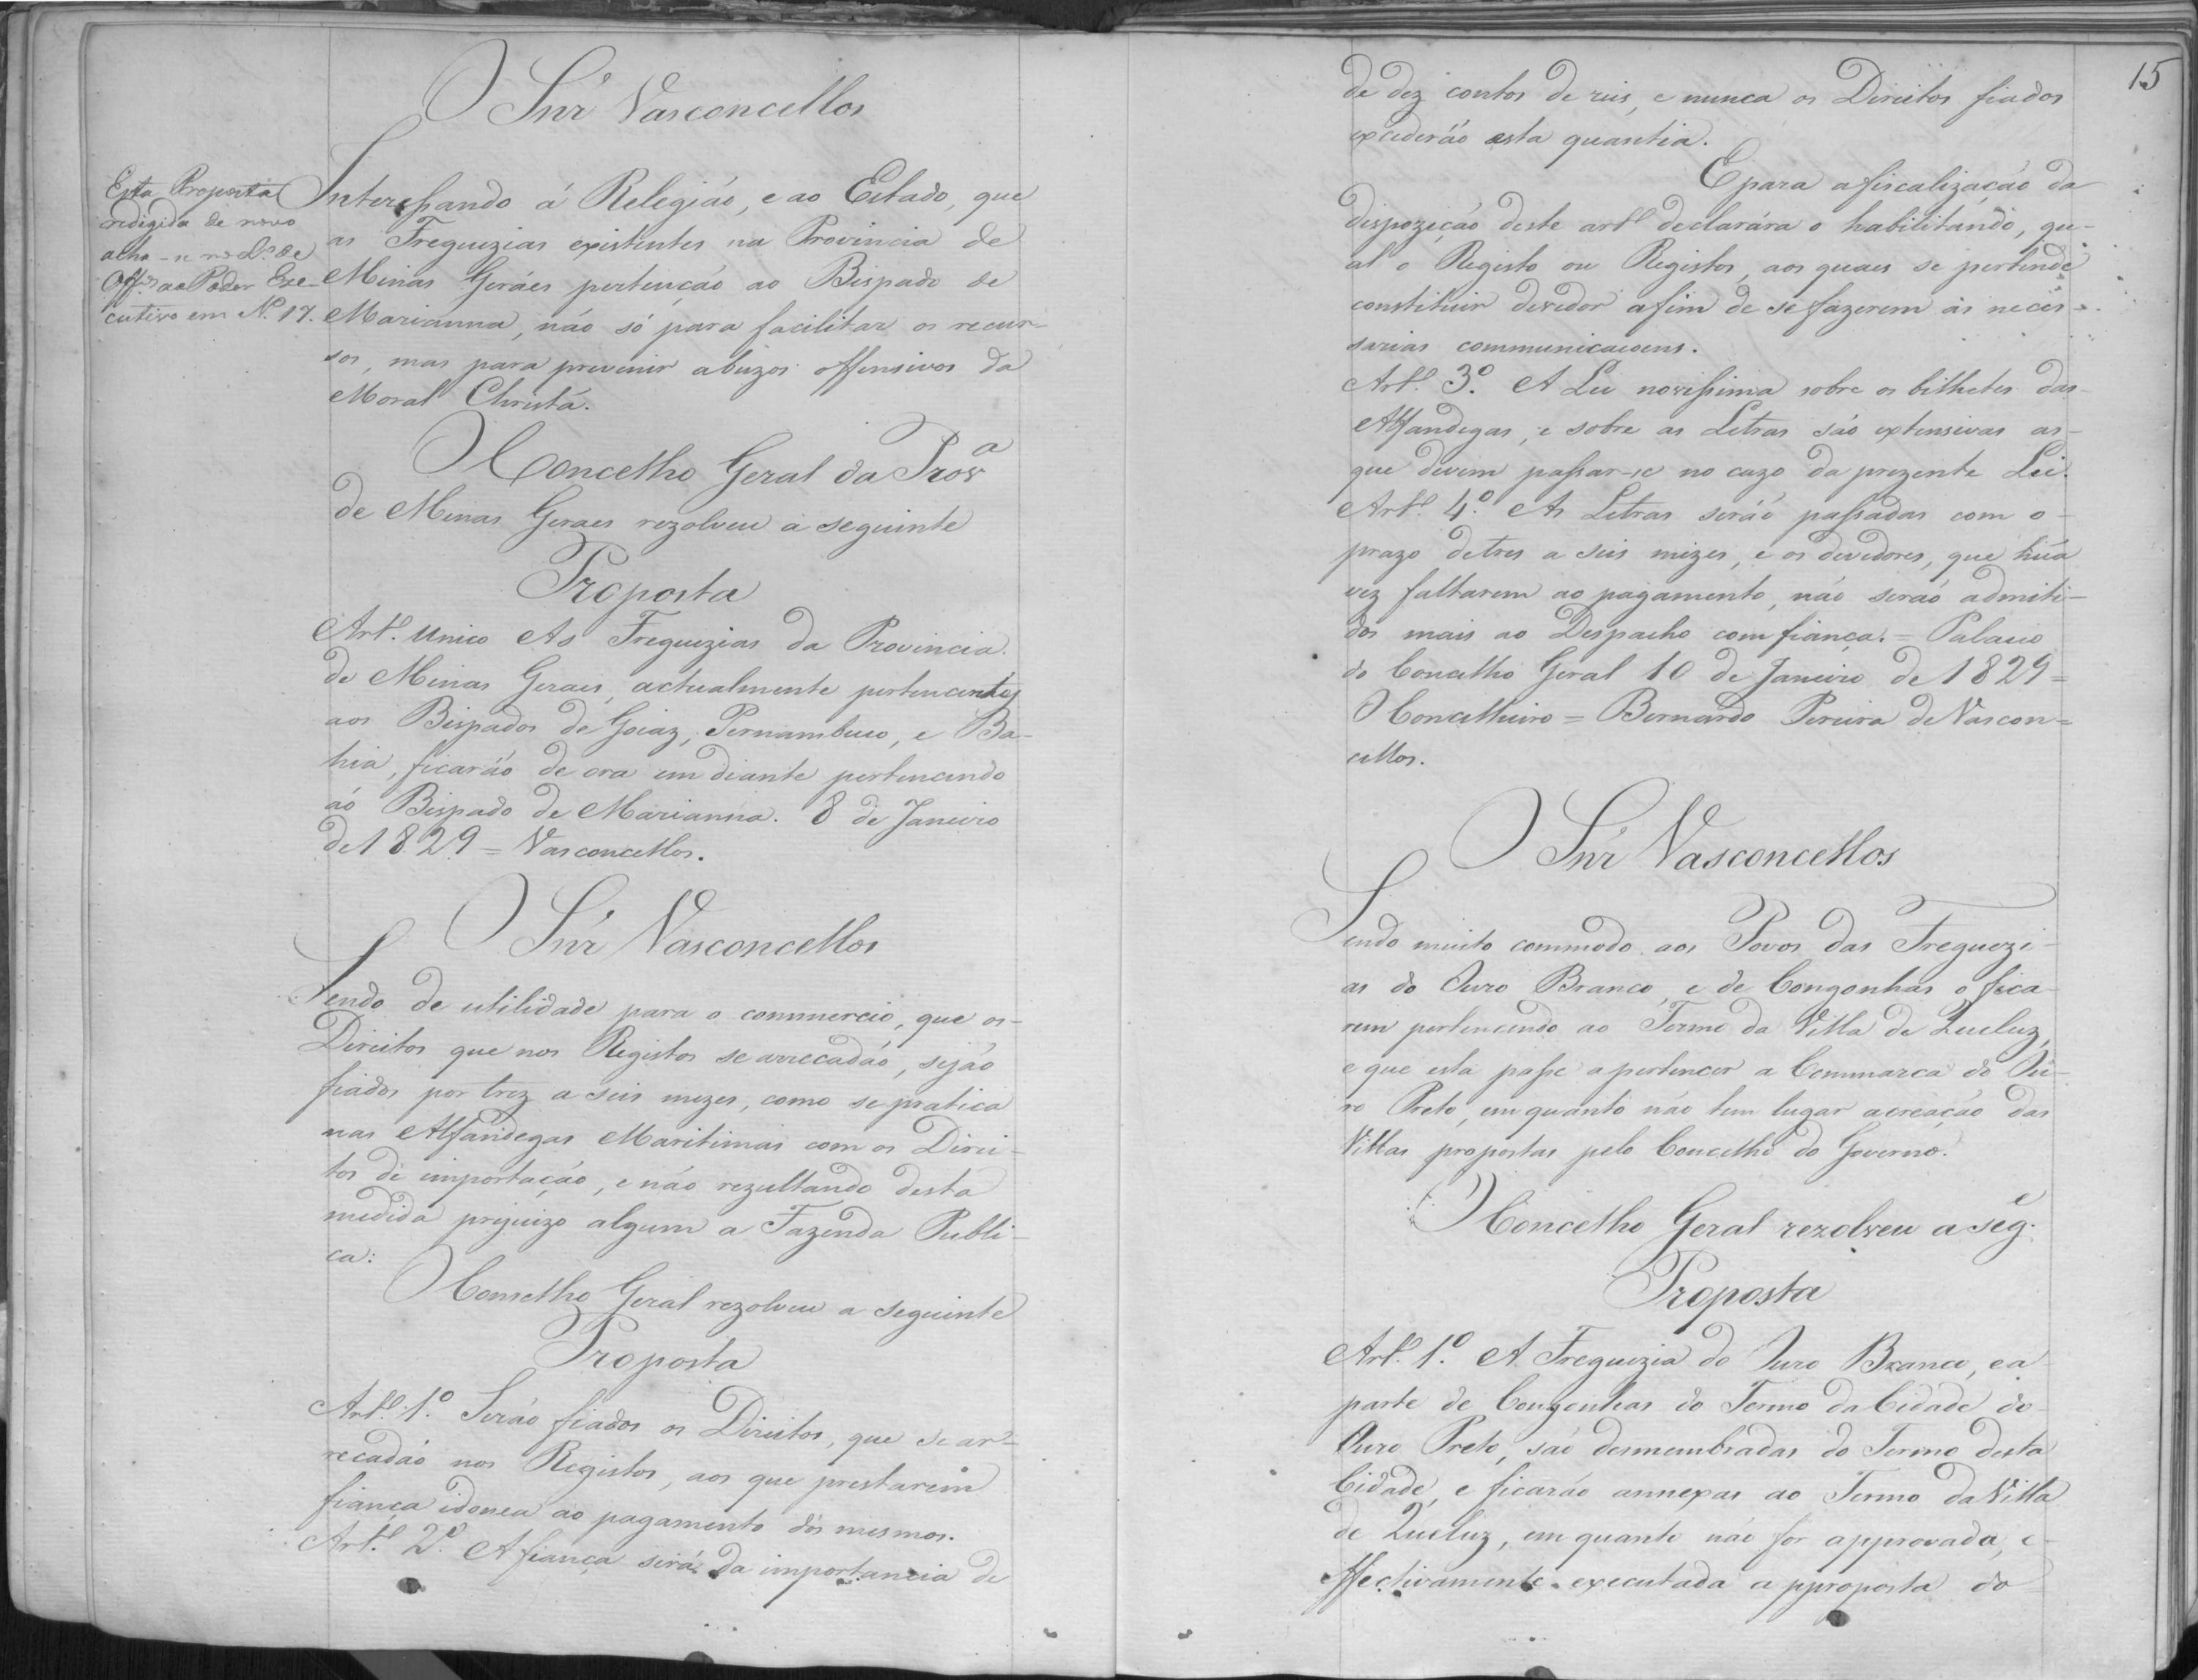 O Snr̃ Vasconcellos
Esta Proposta
redigida de novo
acha-se no L.º de
Off.os ao Poder Exe-
cutivo em N.º 17.
Interessando á Relegião, e ao Estado, que
as Freguezias existentes na Provincia de
Minas Geráes pertenção ao Bispado de
Marianna, não só para facilitar os recur-
sos, mas para prevenir abuzos offensivos da
Moral Christã.
O Concelho Geral da Prov.a
de Minas Geraes rezolveu a seguinte
Proposta
Art.º unico As Freguezias da Provincia
de Minas Geraes, actualmente pertencentes
aos Bispados de Goiaz, Pernambuco, e Ba-
hia, ficarão de ora em diante pertencendo
áo Bispado de Marianna. 8 de Janeiro
de 1829 = Vasconcellos.
O Snr̃ Vasconcellos
Sendo de utilidade para o commercio, que os-
Direitos que nos Registos se arrecadão, sejão
fiados por trez a seis mezes, como se pratica
nas Alfandegas Maritimas com os Direi-
tos de importação, e não rezultando desta
medida prejuizo algum a Fazenda Publi-
ca:
O Conselho Geral rezolveu a seguinte
Proposta
Art.º 1.º Serão fiados os Direitos, que se ar-
recadão nos Registos, aos que prestarem
fiança idonea ao pagamento dos mesmos.
Art.º 2.º A fiança será da importancia de
15
de dez contos de reis, e nunca os Direitos fiados
excederão esta quantia.
E para a fiscalização da
dispozição deste art.º declarára o habilitando, qu-
al o Registo ou Registos, aos quaes se pertende
constituir devedor afim de se fazerem as neces-
sarias communicacoens.
Art.º 3.º A Lei novissima sobre os bilhetes das-
Alfandegas, e sobre as Letras são extensivas as-
que devem passar-se no cazo da prezente Lei.
Art.º 4.º As Letras serão passadas com o-
prazo de tres a seis mezes, e os devedores, que hũa
vez faltarem ao pagamento, não serão admiti-
dos mais ao Despacho com fiança. = Palacio
do Concelho Geral 10 de Janeiro de 1829 =
O Concelheiro = Bernardo Pereira de Vascon=
cellos.
O Snr̃ Vasconcellos
Sendo muito commodo aos Povos das Freguezi-
as do Ouro Branco, e de Congonhas o fica-
rem pertencendo ao Termo da Villa de Queluz,
e que esta passe a pertencer a Commarca do Ou-
ro Preto, em quanto não tem lugar a creação das
Villas propostas pelo Concelho do Governo.
O Concelho Geral rezolveu a seg.e
Proposta
Art.º 1.º A Freguezia do Ouro Branco, e a
parte de Congonhas do Termo da Cidade do-
Ouro Preto, são desmembradas do Termo desta
Cidade, e ficarão annexas ao Termo da Villa
de Queluz, em quanto não for approvada, e-
ffectivamente executada a pproposta do